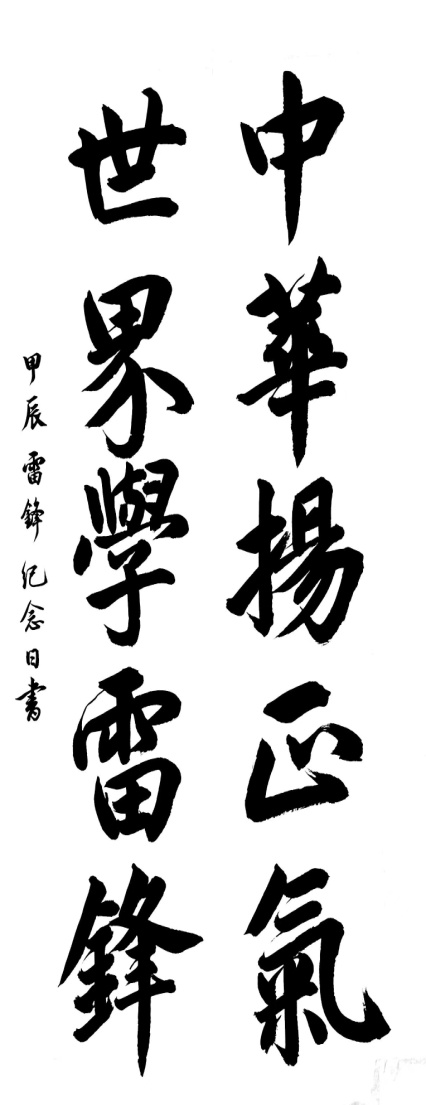 中華揚正氣
世界學雷鋒
甲辰雷鋒纪念日書